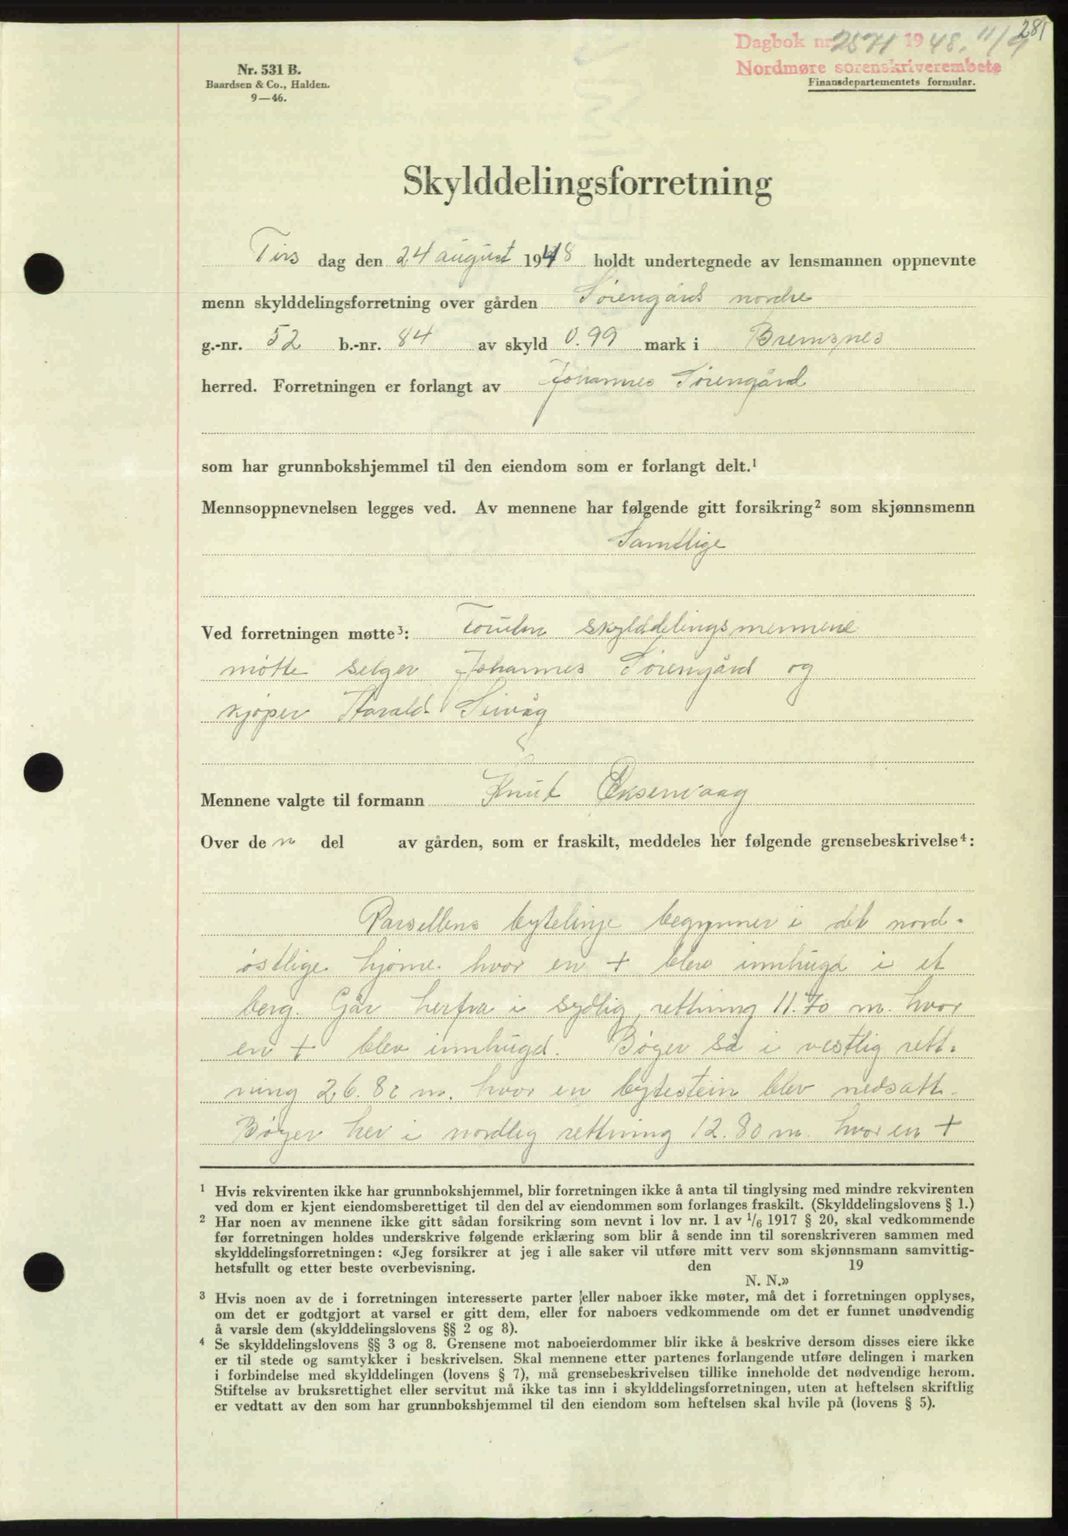 281
Dagbok nr. 2571 1948. 11/9
Nordmøre sorenskriverembete
Nr. 531 B.
Baardsen & Co., Halden.
9—46.
Finansdepartementets formular.
Skylddelingsforretning
Tirs dag den 24 august 1948 holdt undertegnede av lensmannen oppnevnte
menn skylddelingsforretning over gården Sørengård nordre
g.-nr. 52 b.-nr. 84 av skyld 0.99 mark i Bremsnes
herred. Forretningen er forlangt av Johannes Sørengård
som har grunnbokshjemmel til den eiendom som er forlangt delt.¹
Mennsoppnevnelsen legges ved. Av mennene har følgende gitt forsikring² som skjønnsmenn
Samtlige
Ved forretningen møtte³: Foruten skylddelingsmennene
møtte selger Johannes Sørengård og
kjøper Harald
Mennene valgte til formann Knut Øksenvaag
Over de n del av gården, som er fraskilt, meddeles her følgende grensebeskrivelse⁴:
Parsellens bytelinje begynner i det nord-
østlige hjørne hvor en + blev innhugd i et
berg. Går herfra i sydlig rettning 11.70 m. hvor
en + blev innhugd. Bøger så i vestlig rett-
ning 26.80 m. hvor en bytestein blev nedsatt.
Bøyer her i nordlig rettning 12.80 m. hvor en +
¹ Hvis rekvirenten ikke har grunnbokshjemmel, blir forretningen ikke å anta til tinglysing med mindre rekvirenten
ved dom er kjent eiendomsberettiget til den del av eiendommen som forlanges fraskilt. (Skylddelingslovens § 1.)
² Har noen av mennene ikke gitt sådan forsikring som nevnt i lov nr. 1 av 1/6 1917 § 20, skal vedkommende
før forretningen holdes underskrive følgende erklæring som blir å sende inn til sorenskriveren sammen med
skylddelingsforretningen: «Jeg forsikrer at jeg i alle saker vil utføre mitt verv som skjønnsmann samvittig-
hetsfullt og etter beste overbevisning. den 19
N. N.»
³ Hvis noen av de i forretningen interesserte parter eller naboer ikke møter, må det i forretningen opplyses,
om det er godtgjort at varsel er gitt dem, eller for naboers vedkommende om det er funnet unødvendig
å varsle dem (skylddelingslovens §§ 2 og 8).
⁴ Se skylddelingslovens §§ 3 og 8. Grensene mot naboeierdommer blir ikke å beskrive dersom disses eiere ikke
er til stede og samtykker i beskrivelsen. Skal mennene etter partenes forlangende utføre delingen i marken
i forbindelse med skylddelingen (lovens § 7), må grensebeskrivelsen tillike inneholde det nødvendige herom.
Stiftelse av bruksrettighet eller servitut må ikke tas inn i skylddelingsforretningen, uten at heftelsen skriftlig
er vedtatt av den som har grunnbokshjemmel til den eiendom som heftelsen skal hvile på (lovens § 5).